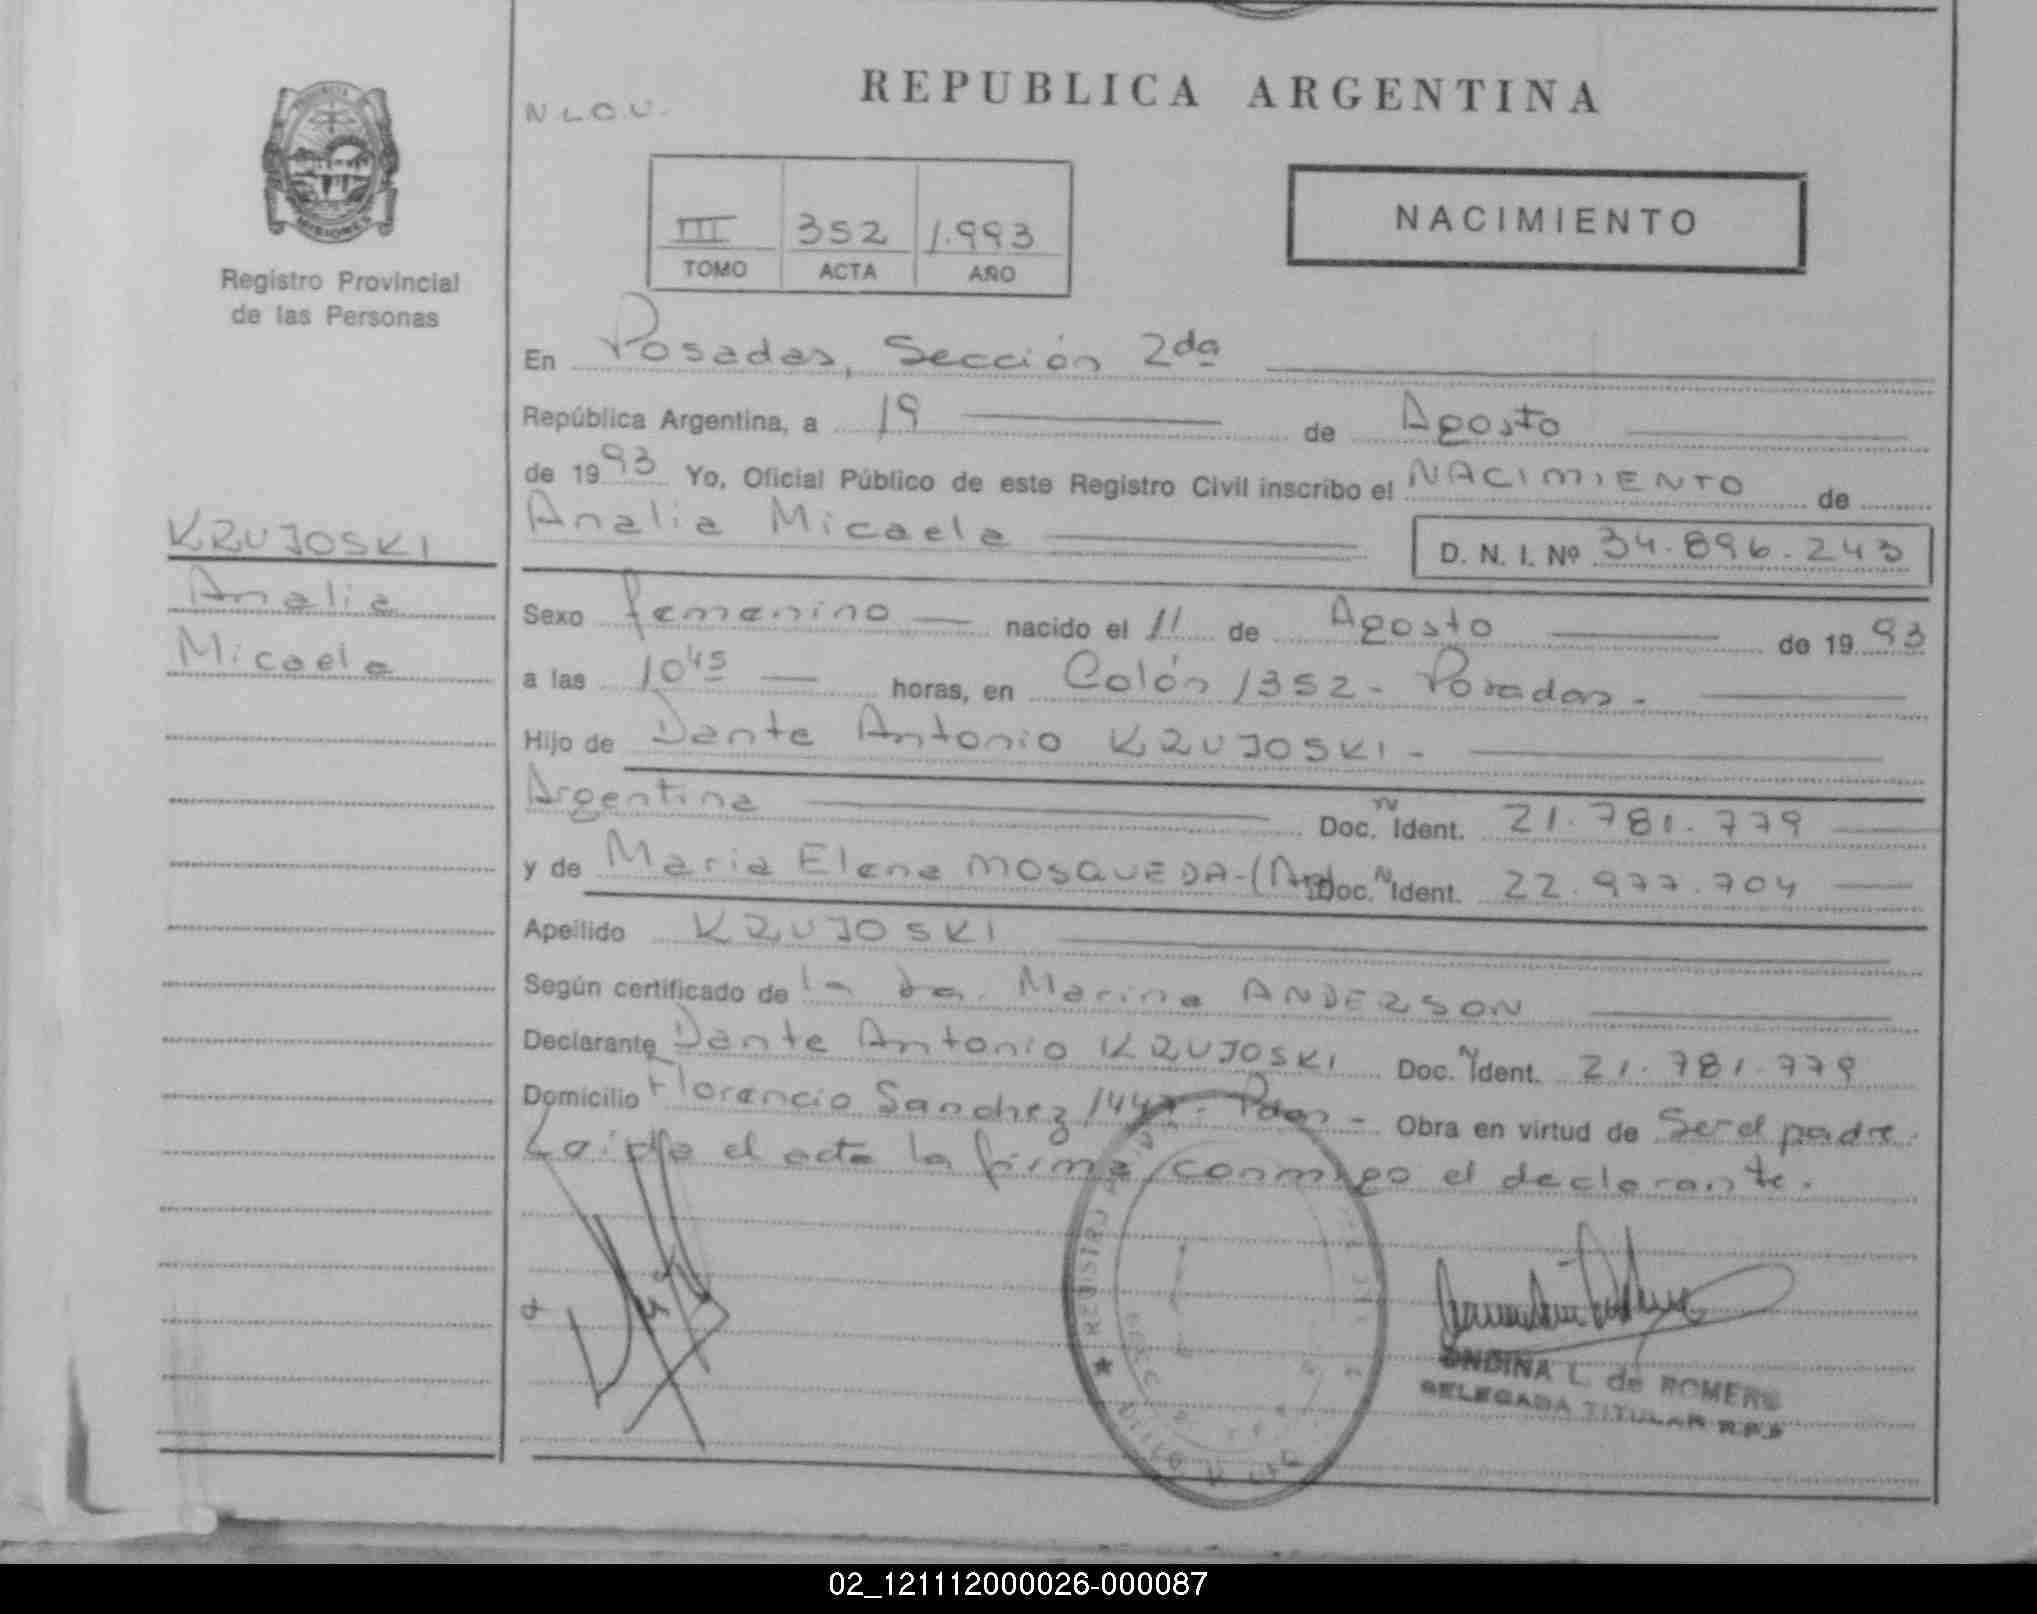 REPUBLICA ARGENTINA
N.L.O.V.
NACIMIENTO
III 352 1.993
TOMO ACTA AÑO
MISIONES
Registro Provincial
de las Personas
KRUJOSKI
Analia
Micaela
En Posadas, Sección 2da
República Argentina, a 19 de Agosto
de 1993 Yo, Oficial Público de este Registro Civil inscribo el NACIMIENTO de
Analia Micaela D. N. I. Nº 34.896.243
Sexo femenino nacido el 11 de Agosto de 1993
a las 10 45 horas, en Colón 1352 - Posadas -
Hijo de Dante Antonio KRUJOSKI -
Argentina Doc. N Ident. 21.781.779
y de Maria Elena MOSQUEDA - (Arg Doc. N Ident. 22.977.704
Apellido KRUJOSKI
Según certificado de la Dra. Marina ANDERSON
Declarante Dante Antonio KRUJOSKI Doc. N Ident. 21.781.779
Domicilio Florencio Sanchez 1447 - Pdas - Obra en virtud de Ser el padre.
Leida el acta la firma conmigo el declarante.
REGISTRO
ONDINA L. de ROMERO
DELEGADA TITULAR R.P.P
02_121112000026-000087